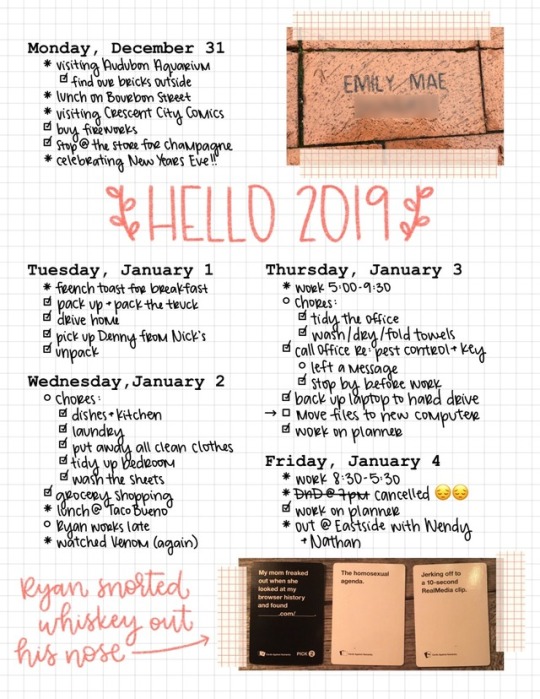 Monday, December 31
* visiting Audubon Aquarium
☑ find our bricks outside
* lunch on Bourbon Street
* visiting Crescent City Comics
☑ buy fireworks
☑ stop @ the store for champagne
* celebrating New Years Eve!!
EMILY MAE
HELLO 2019
Tuesday, January 1
* french toast for breakfast
☑ pack up + pack the truck
☑ drive home
☑ pick up Denny from Nick's
☑ unpack
Wednesday, January 2
○ chores:
☑ dishes + kitchen
☑ laundry
☑ put away all clean clothes
☑ tidy up bedroom
☑ wash the sheets
☑ grocery shopping
* lunch @ Taco Bueno
○ Ryan works late
* watched Venom (again)
Thursday, January 3
* work 5:00-9:30
○ chores:
☑ tidy the office
☑ wash/dry/fold towels
☑ call office re: pest control + key
○ left a message
☑ stop by before work
☑ back up laptop to hard drive
→ □ Move files to new computer
☑ work on planner
Friday, January 4
* work 8:30-5:30
* DnD @ 7pm cancelled 😔😔
☑ work on planner
* out @ Eastside with Wendy
+ Nathan
Ryan snorted
whiskey out
his nose
My mom freaked
out when she
looked at my
browser history
and found
____.com/____.
PICK 2
The homosexual
agenda.
Jerking off to
a 10-second
RealMedia clip.